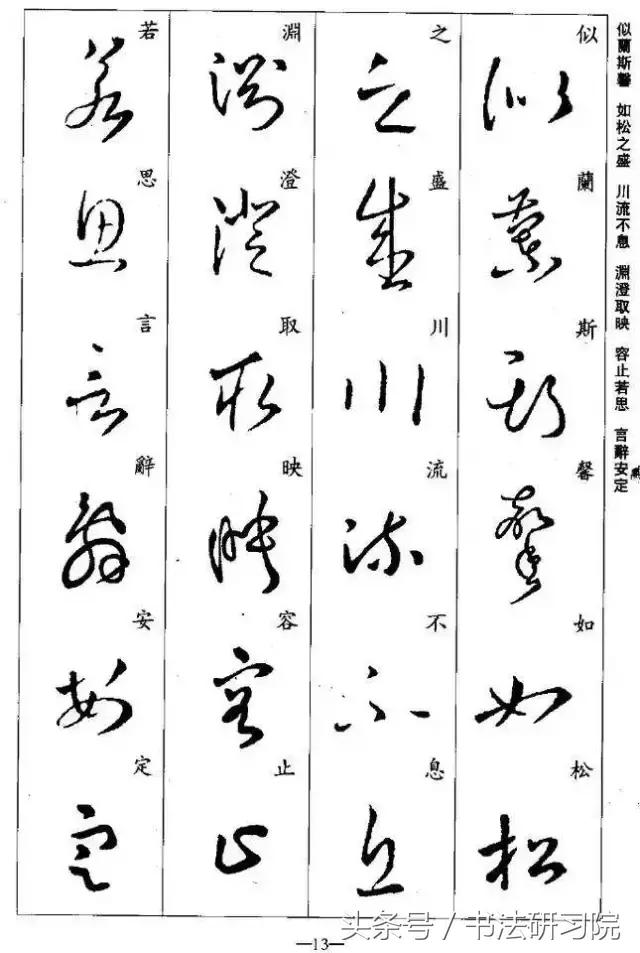 似蘭斯馨 如松之盛 川流不息 淵澄取映 容止若思 言辭安定
似蘭斯馨如松
之盛川流不息
淵澄取映容止
若思言辭安定
头条号/书法研习院
—13—